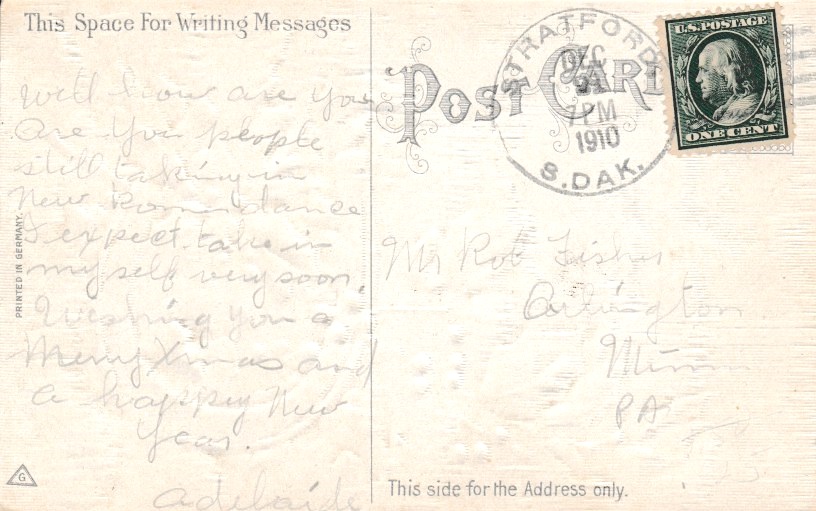 This Space For Writing Messages
Well how are you
Are you people
still taking in
New Rome dance
I expect take in
my self very soon.
Wishing you a
Merry Xmas and
a happy New
Year.
Adelaide
PRINTED IN GERMANY.
G
POST CARD
STRATFORD
DEC
PM
1910
S.DAK.
U.S.POSTAGE
ONE CENT
Mr Rob Fisher
Arlington
Minn
PA
This side for the Address only.